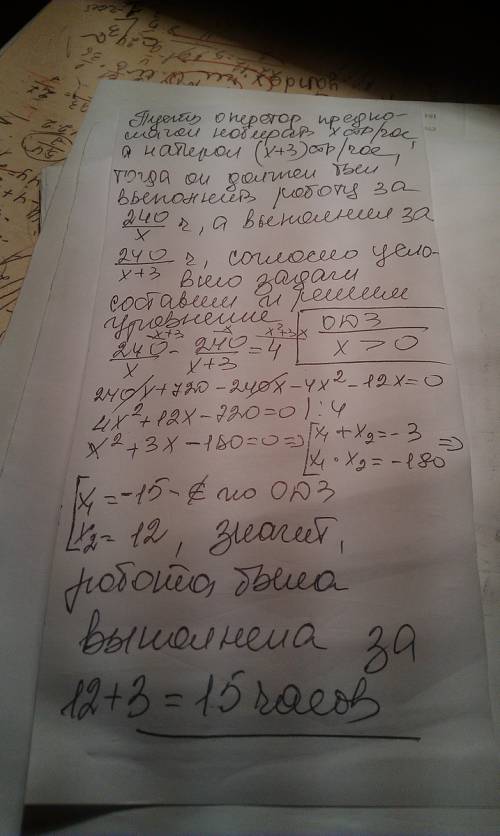 Пусть оператор предпо-
лагал набирать x стр/час,
а набирал (x+3) стр/час,
тогда он должен был
выполнить работу за
240/x ч, а выполнил за
240/x+3 ч, согласно усло-
вию задачи
составим и решим
уравнение
240/x - 240/x+3 = 4
ОДЗ
x > 0
240x+720-240x-4x²-12x=0
4x²+12x-720=0 | :4
x²+3x-180=0 => [x₁+x₂=-3 =>
x₁·x₂=-180
[x₁=-15-∉ по ОДЗ
x₂=12, значит,
работа была
выполнена за
12+3=15 часов